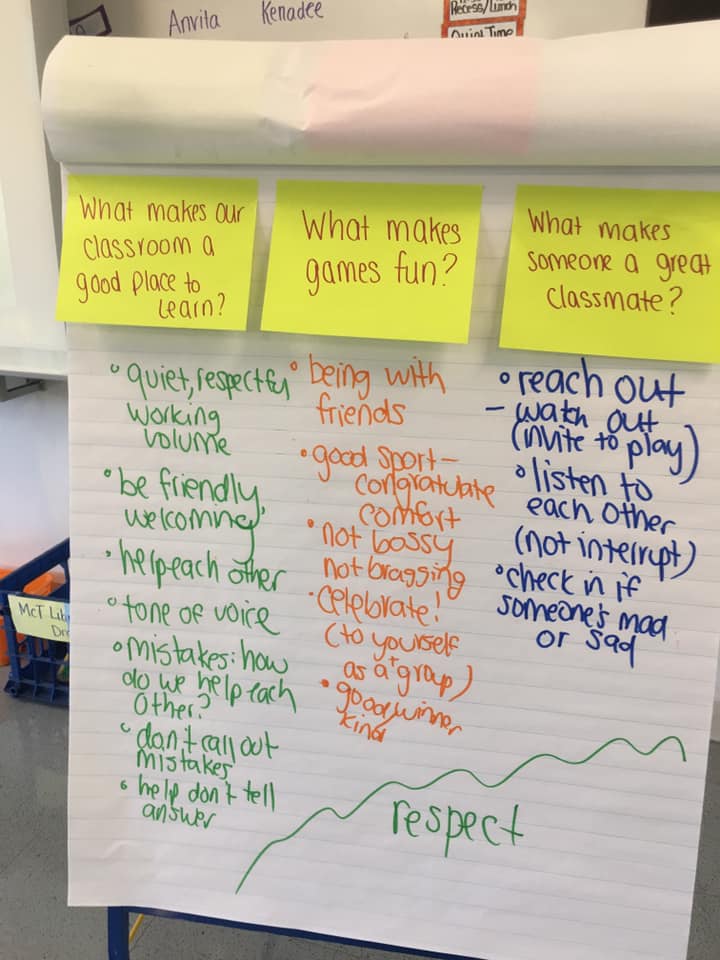 Anvita
Kenadee
Recess/Lunch
Quiet Time
What makes our
classroom a
good place to
learn?
° quiet, respectful
working
volume
° be friendly,
welcoming
° help each other
° tone of voice
° mistakes: how
do we help each
other?
° don't call out
mistakes
° help don't tell
answer
What makes
games fun?
° being with
friends
• good sport -
congratulate
comfort
• not bossy
not bragging
• celebrate!
(to yourself
+
as a group)
• good winner
kind
What makes
someone a great
classmate?
° reach out
- watch out
(invite to play)
° listen to
each other
(not interrupt)
° check in if
someone's mad
or sad
respect
McT